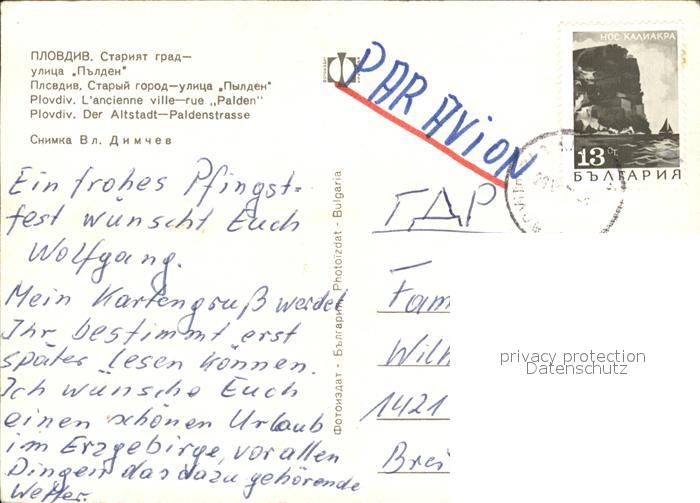 ПЛОВДИВ. Старият град—
улица „Пълден"
Пловдив. Старый город—улица „Пылден"
Plovdiv. L'ancienne ville—rue „Palden"
Plovdiv. Der Altstadt—Paldenstrasse
Снимка Вл. Димчев
Ein frohes Pfingst=
fest wünscht Euch
Wolfgang.
Mein Kartengruß werdet
Ihr bestimmt erst
später lesen können.
Ich wünsche Euch
einen schönen Urlaub
im Erzgebirge, vor allen
Dingen das dazu gehörende
Wetter.
Фотоиздат - България Photoizdat - Bulgaria
PAR AVION
НОС КАЛИАКРА
13 ст.
БЪЛГАРИЯ
ГДР
Fam
Wilh
1421
Brei
privacy protection
Datenschutz